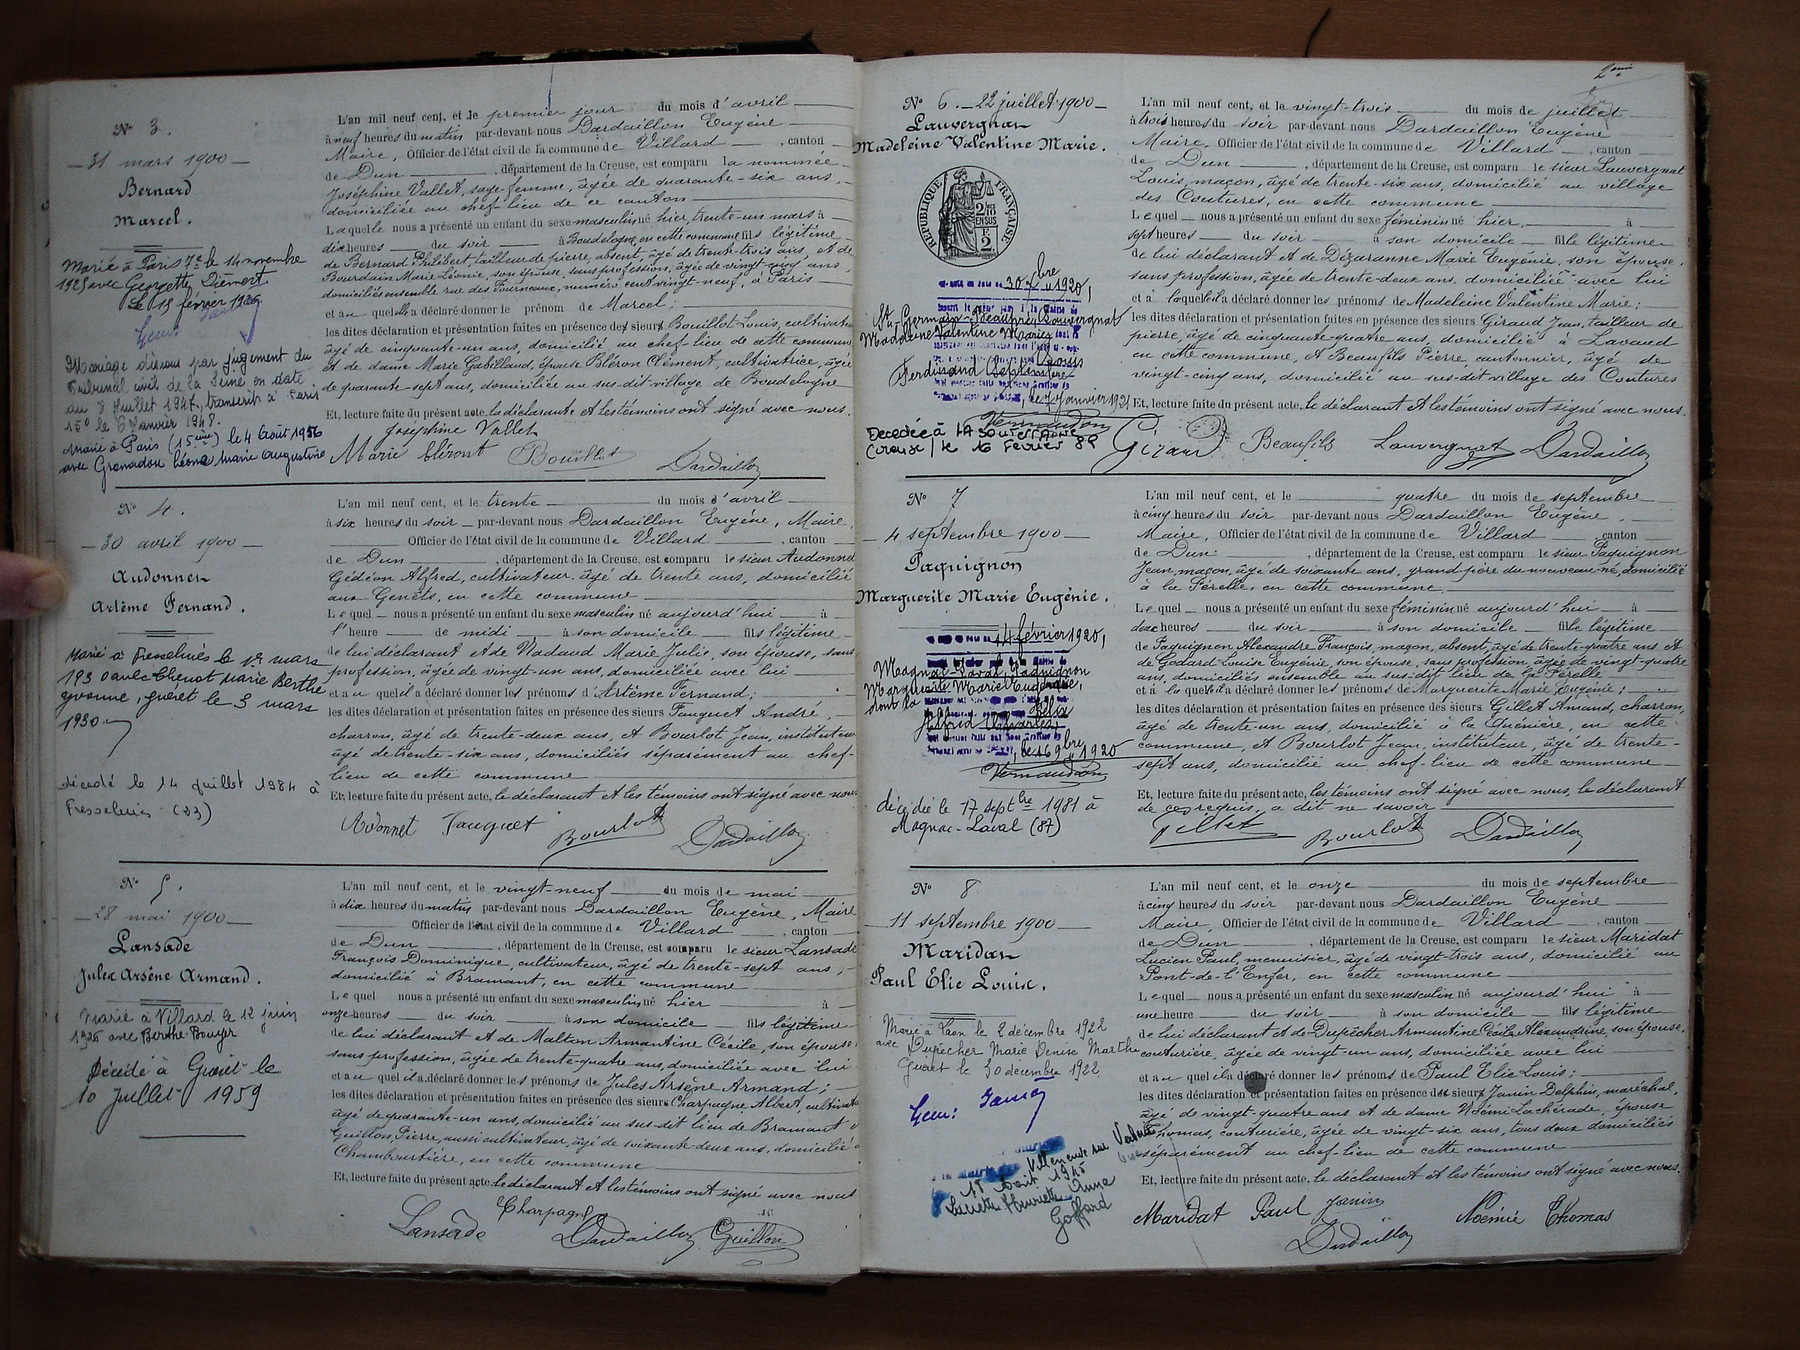 N° 3.
31 mars 1900
Bernard
Marcel.
Marié à Paris 7e le 14 novembre
1925 avec Georgette Diemert
Le 18 février 1926
Mariage dissous par jugement du
Tribunal civil de la Seine en date
du 8 Juillet 1947, transcrit à Paris
15e le 6 Janvier 1948.
Marié à Paris (15ème) le 4 Août 1956
avec Granadou Léone Marie Augustine
L'an mil neuf cent, et le premier jour du mois d'avril
à neuf heures du matin par-devant nous Dardaillon Eugène
Maire, Officier de l'état civil de la commune de Villard, canton
de Dun, département de la Creuse, est comparu la nommée
Joséphine Vallet, sage-femme, âgée de quarante-six ans,
domiciliée au chef-lieu de ce canton
Laquelle nous a présenté un enfant du sexe masculin né hier, trente-un mars à
dix heures du soir à Boudelogne, en cette commune fils légitime
de Bernard Philibert, tailleur de pierre, absent, âgé de trente-trois ans, et de
Bourdain Marie Léonie, son épouse, sans profession, âgée de vingt-cinq ans,
domiciliés ensemble rue des Fourneaux, numéro cent vingt-neuf, à Paris
et au quel a déclaré donner le prénom de Marcel;
les dites déclaration et présentation faites en présence des sieurs Bouillot Louis, cultivateur
âgé de cinquante-un ans, domicilié au chef-lieu de cette commune
et de dame Marie Gabillaud, épouse Bléron Clément, cultivatrice, âgée
de quarante-sept ans, domiciliée au sus-dit village de Boudelogne
Et, lecture faite du présent acte, la déclarante et les témoins ont signé avec nous.
Joséphine Vallet
Marie Bouillot Dardaillon
N° 4.
30 avril 1900
Audonnet
Artème Fernand.
Marié à Fresselines le 1er mars
1930 avec Chenot Marie Berthe
Yvonne, Guéret le 3 mars
1930
Décédé le 14 juillet 1984 à
Fresselines (23)
L'an mil neuf cent, et le trente du mois d'avril
à six heures du soir par-devant nous Dardaillon Eugène, Maire
Officier de l'état civil de la commune de Villard, canton
de Dun, département de la Creuse, est comparu le sieur Audonnet
Gédéon Alfred, cultivateur, âgé de trente ans, domicilié
aux Genêts, en cette commune
Lequel nous a présenté un enfant du sexe masculin né aujourd'hui à
l'heure de midi, à son domicile fils légitime
de lui déclarant et de Nadaud Marie Julie, son épouse, sans
profession, âgée de vingt-un ans, domiciliée avec lui
et au quel il a déclaré donner les prénoms d'Artème Fernand;
les dites déclaration et présentation faites en présence des sieurs Fauquet André,
charron, âgé de trente-deux ans, et Bourlot Jean, instituteur
âgé de trente-six ans, domiciliés séparément au chef-
lieu de cette commune
Et, lecture faite du présent acte, le déclarant et les témoins ont signé avec nous
Audonnet Fauquet Bourlot Dardaillon
N° 5.
28 mai 1900
Lansade
Jules Arsène Armand.
Marié à Villard le 12 juin
1926 avec Berthe Bouyer
Décédé à Guéret le
10 Juillet 1959
L'an mil neuf cent, et le vingt-neuf du mois de mai
à dix heures du matin par-devant nous Dardaillon Eugène, Maire
Officier de l'état civil de la commune de Villard, canton
de Dun, département de la Creuse, est comparu le sieur Lansade
François Dominique, cultivateur, âgé de trente-sept ans,
domicilié à Bramant, en cette commune
Lequel nous a présenté un enfant du sexe masculin né hier à
onze heures du soir à son domicile fils légitime
de lui déclarant et de Malton Armantine Cécile, son épouse
sans profession, âgée de trente-quatre ans, domiciliée avec lui
et au quel il a déclaré donner les prénoms de Jules Arsène Armand;
les dites déclaration et présentation faites en présence des sieurs Charpagne Albert, cultivateur
âgé de quarante-un ans, domicilié au sus-dit lieu de Bramant et
Guillon Pierre, aussi cultivateur, âgé de soixante-deux ans, domicilié à
Chamboursière, en cette commune
Et, lecture faite du présent acte, le déclarant et les témoins ont signé avec nous
Lansade Charpagne Dardaillon Guillon
N° 6. 22 juillet 1900
Lauvergnat
Madeleine Valentine Marie.
RÉPUBLIQUE FRANÇAISE
30 7bre 1920,
St Germain-Beaupré, Lauvergnat
Madeleine Valentine Marie
Louis
Ferdinand
le 7 Janvier 1921
Vernaudon
Décédée à LA SOUTERRAINE
(Creuse) le 16 Février 89
L'an mil neuf cent, et le vingt-trois du mois de juillet
à trois heures du soir par-devant nous Dardaillon Eugène
Maire, Officier de l'état civil de la commune de Villard, canton
de Dun, département de la Creuse, est comparu le sieur Lauvergnat
Louis, maçon, âgé de trente-six ans, domicilié au village
des Coutures, en cette commune
Lequel nous a présenté un enfant du sexe féminin né hier, à
sept heures du soir à son domicile fille légitime
de lui déclarant et de Dézaranne Marie Eugénie, son épouse,
sans profession, âgée de trente-deux ans, domiciliée avec lui
et à laquelle il a déclaré donner les prénoms de Madeleine Valentine Marie;
les dites déclaration et présentation faites en présence des sieurs Giraud Jean, tailleur de
pierre, âgé de cinquante-quatre ans, domicilié à Lavaud
en cette commune, et Beaufils Pierre, cantonnier, âgé de
vingt-cinq ans, domicilié au sus-dit village des Coutures
Et, lecture faite du présent acte, le déclarant et les témoins ont signé avec nous.
Giraud Beaufils Lauvergnat Dardaillon
N° 7
4 septembre 1900
Paquignon
Marguerite Marie Eugénie.
14 février 1920,
Magnac-Laval, Paquignon
Marguerite Marie Eugénie,
Félix
Alfred Charles,
le 16 9bre 1920
Vernaudon
décédée le 17 septbre 1981 à
Magnac-Laval (87)
L'an mil neuf cent, et le quatre du mois de septembre
à cinq heures du soir par-devant nous Dardaillon Eugène
Maire, Officier de l'état civil de la commune de Villard, canton
de Dun, département de la Creuse, est comparu le sieur Paquignon
Jean, maçon, âgé de soixante ans, grand-père du nouveau-né, domicilié
à la Férelle, en cette commune
Lequel nous a présenté un enfant du sexe féminin né aujourd'hui à
deux heures du soir à son domicile fille légitime
de Paquignon Alexandre François, maçon, absent, âgé de trente-quatre ans et
de Godard Louise Eugénie, son épouse, sans profession, âgée de vingt-quatre
ans, domiciliés ensemble au sus-dit lieu de la Férelle
et à laquelle il a déclaré donner les prénoms de Marguerite Marie Eugénie;
les dites déclaration et présentation faites en présence des sieurs Gillet Amand, charron,
âgé de trente-un ans, domicilié à la Épinière, en cette
commune, et Bourlot Jean, instituteur, âgé de trente-
sept ans, domicilié au chef-lieu de cette commune
Et, lecture faite du présent acte, les témoins ont signé avec nous, le déclarant
de ce requis, a dit ne savoir
Gillet Bourlot Dardaillon
N° 8
11 septembre 1900
Maridat
Paul Elie Louis.
Marié à Laon le 2 décembre 1922
avec Dupêcher Marie Denise Marthe
Guéret le 30 décembre 1922
Villeneuve sur
18 Août 1945
Henriette Anna
Goffard
L'an mil neuf cent, et le onze du mois de septembre
à cinq heures du soir par-devant nous Dardaillon Eugène
Maire, Officier de l'état civil de la commune de Villard, canton
de Dun, département de la Creuse, est comparu le sieur Maridat
Lucien Paul, menuisier, âgé de vingt-trois ans, domicilié au
Pont-de-l'Enfer, en cette commune
Lequel nous a présenté un enfant du sexe masculin né aujourd'hui à
une heure du soir à son domicile fils légitime
de lui déclarant et de Dupêcher Armantine Cécile Alexandrine, son épouse,
couturière, âgée de vingt-un ans, domiciliée avec lui
et au quel il a déclaré donner les prénoms de Paul Elie Louis;
les dites déclaration et présentation faites en présence des sieurs Janin Delphin, maréchal,
âgé de vingt-quatre ans et de dame Noémi Lacherade, épouse
Thomas, couturière, âgée de vingt-six ans, tous deux domiciliés
séparément au chef-lieu de cette commune
Et, lecture faite du présent acte, le déclarant et les témoins ont signé avec nous.
Maridat Paul Janin Noémie Thomas
Dardaillon